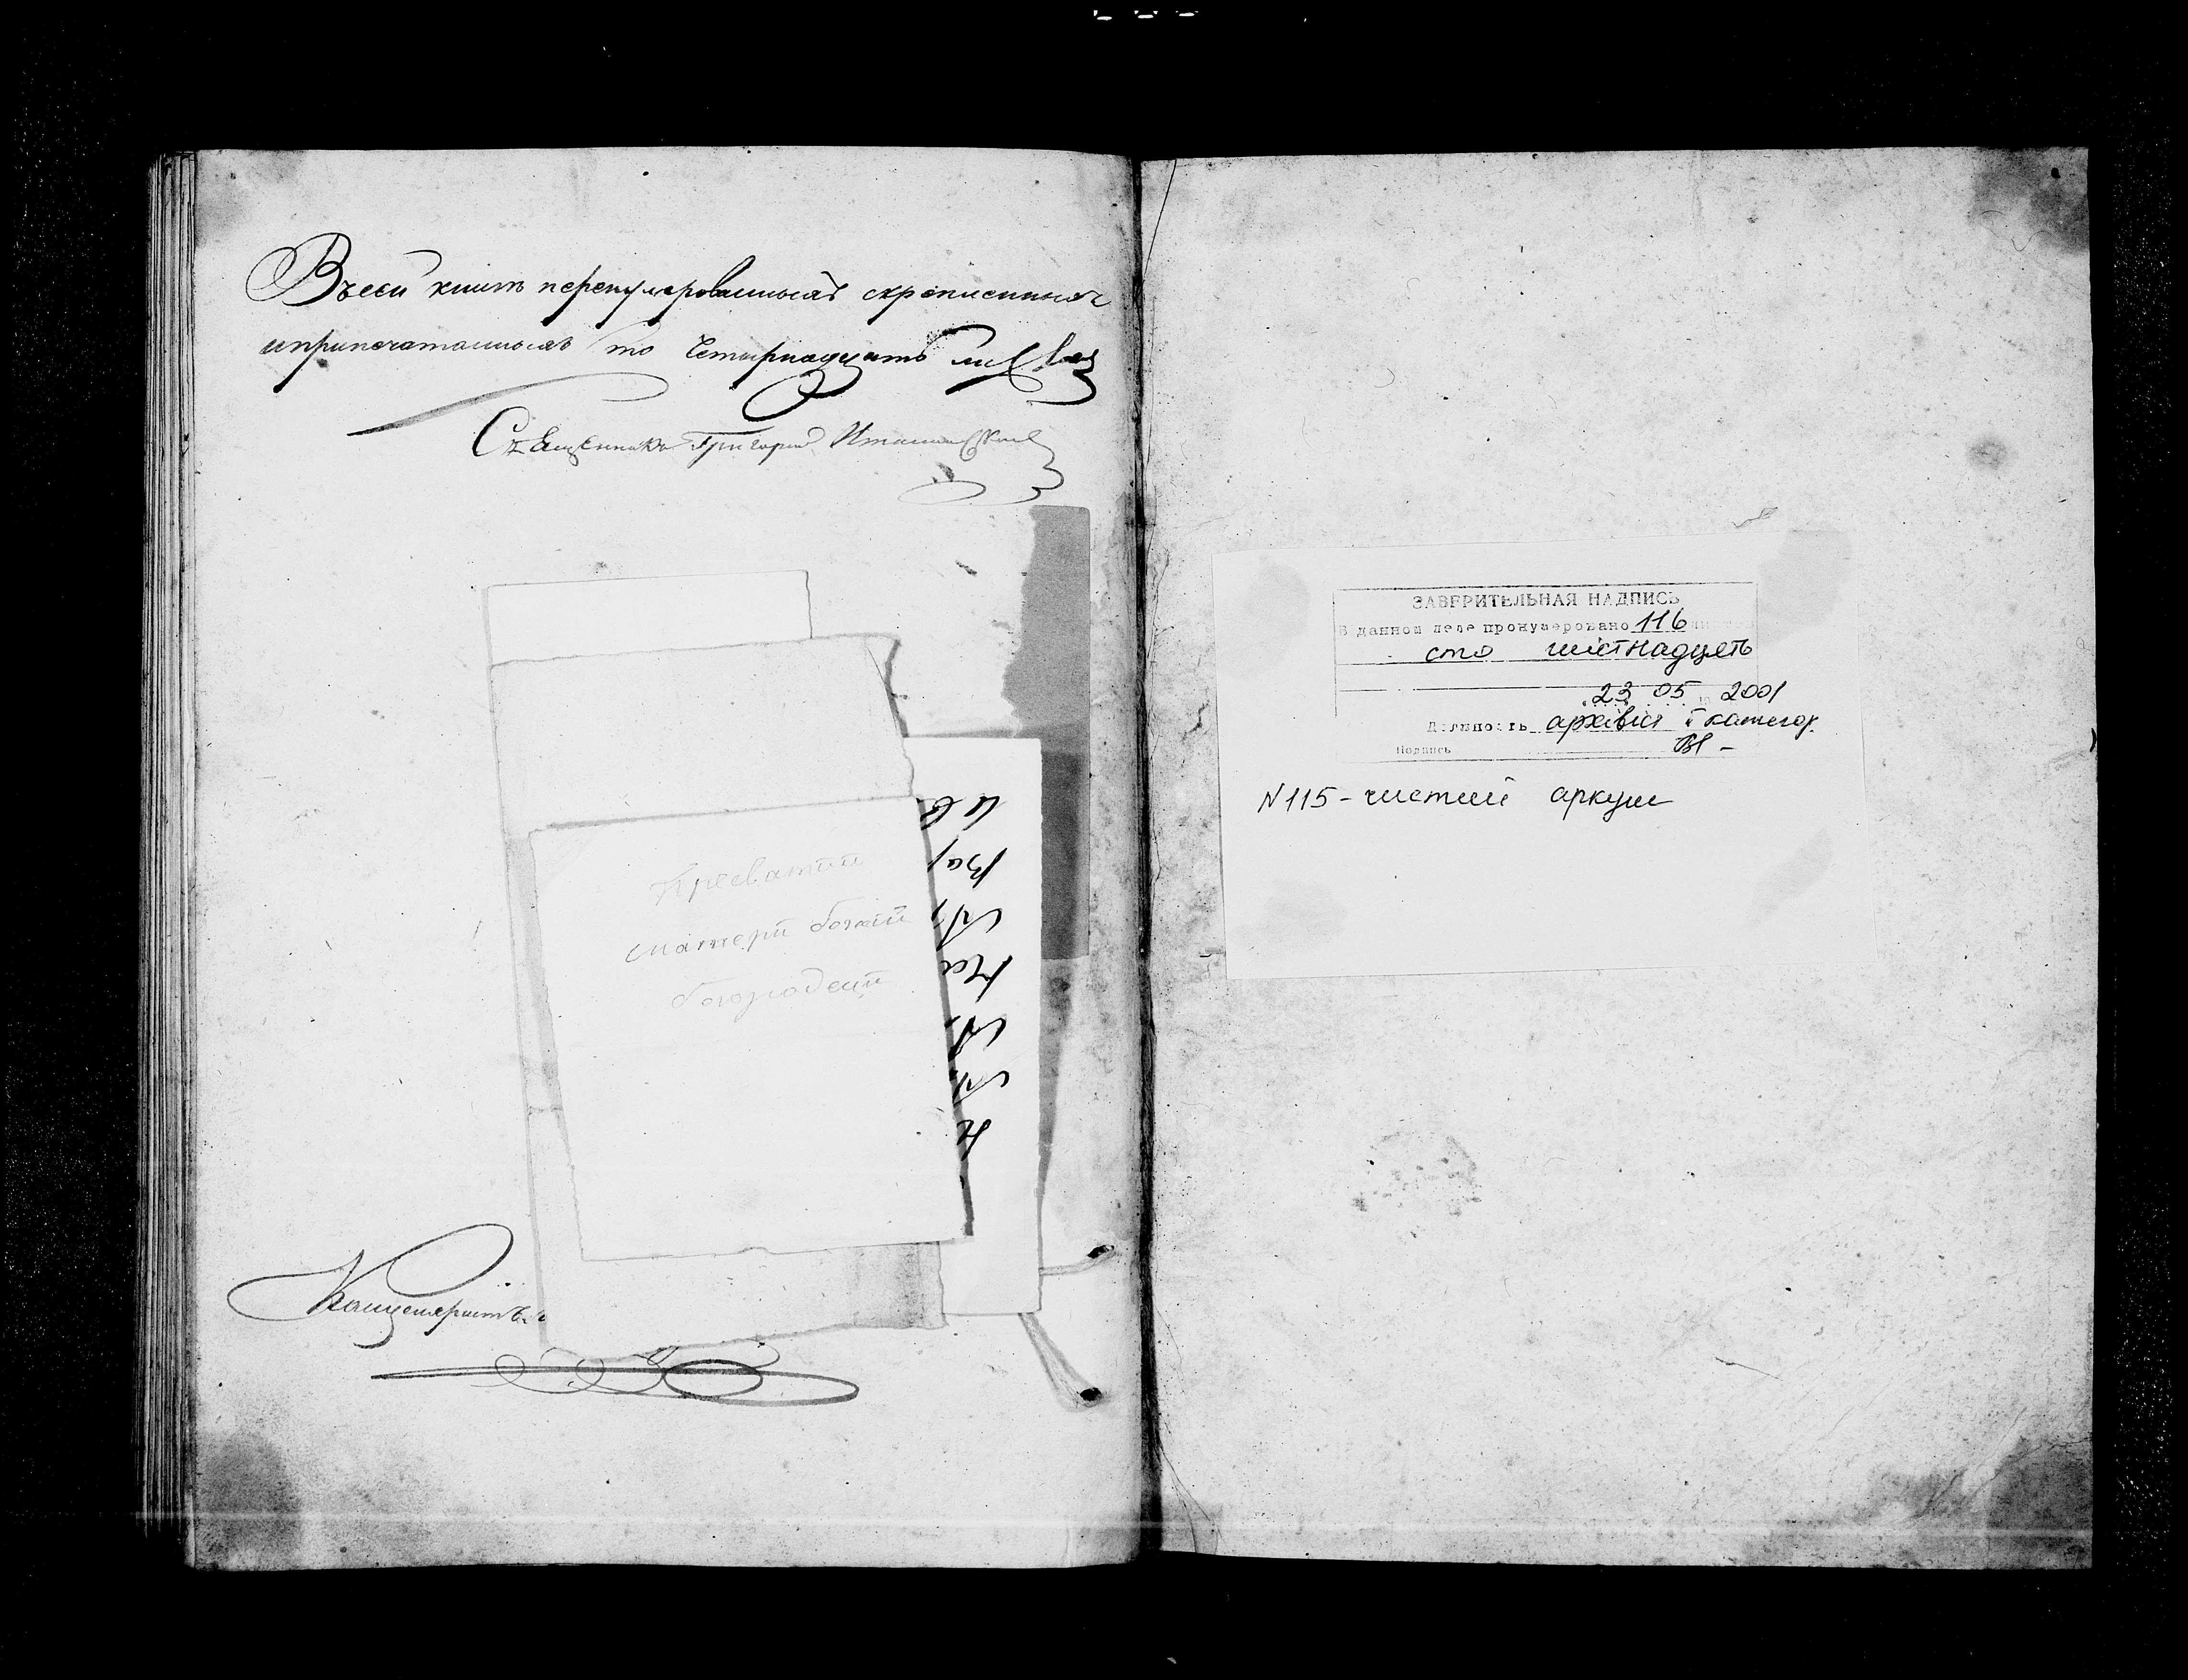 Въсей книгѣ перенумерованныхъ скрѣпленныхъ
иприпечатанныхъ сто Четырнадцать листовъ
Священникъ Григорий
Пресватий
матери божий
богородеци
Канцеляристъ
ЗАВЕРИТЕЛЬНАЯ НАДПИСЬ
В данном деле пронумеровано 116
сто шістнадцять
23 05 2001
Должность архівіст I категор.
Подпись
N 115 - чистий аркуш